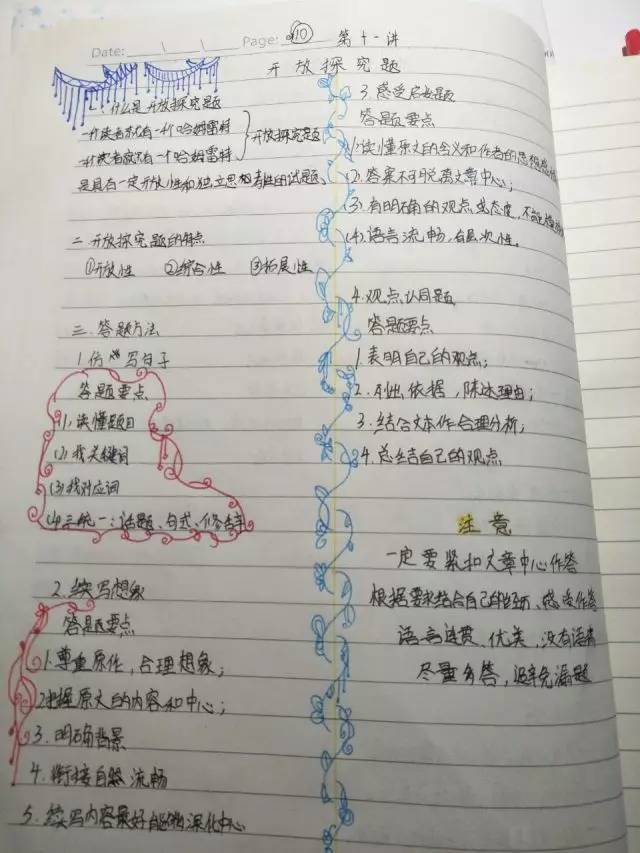 Date:
Page: 10
第十一讲
开放探究题
一.什么是开放探究题
一千读者就有一千个哈姆雷特
开放探究题
是具有一定开放性和独立思想考性的试题
二 开放探究题的特点
①开放性 ②综合性 ③拓展性
三.答题方法
1.仿写句子
答题要点
(1).读懂题目
(2).找关键词
(3)找对应词
(4)三统一:话题、句式、修辞手
2.续写想象
答题要点
1.尊重原作,合理想象;
2.把握原文的内容和中心;
3.明确背景
4.衔接自然流畅
5.续写内容最好能够深化中心
3.感受启发题
答题要点
(1).读懂原文的含义和作者的思想感情
(2).答案不可脱离文章中心;
(3).有明确的观点或态度,不能模
(4).语言流畅,有层次性。
4.观点认同题
答题要点
1.表明自己的观点;
2.列出依据,陈述理由;
3.结合文本作合理分析;
4.总结自己的观点
注意
一定要紧扣文章中心作答
根据要求结合自己的经历、感受作答
语言连贯、优美,没有语病
尽量多答,避免漏题